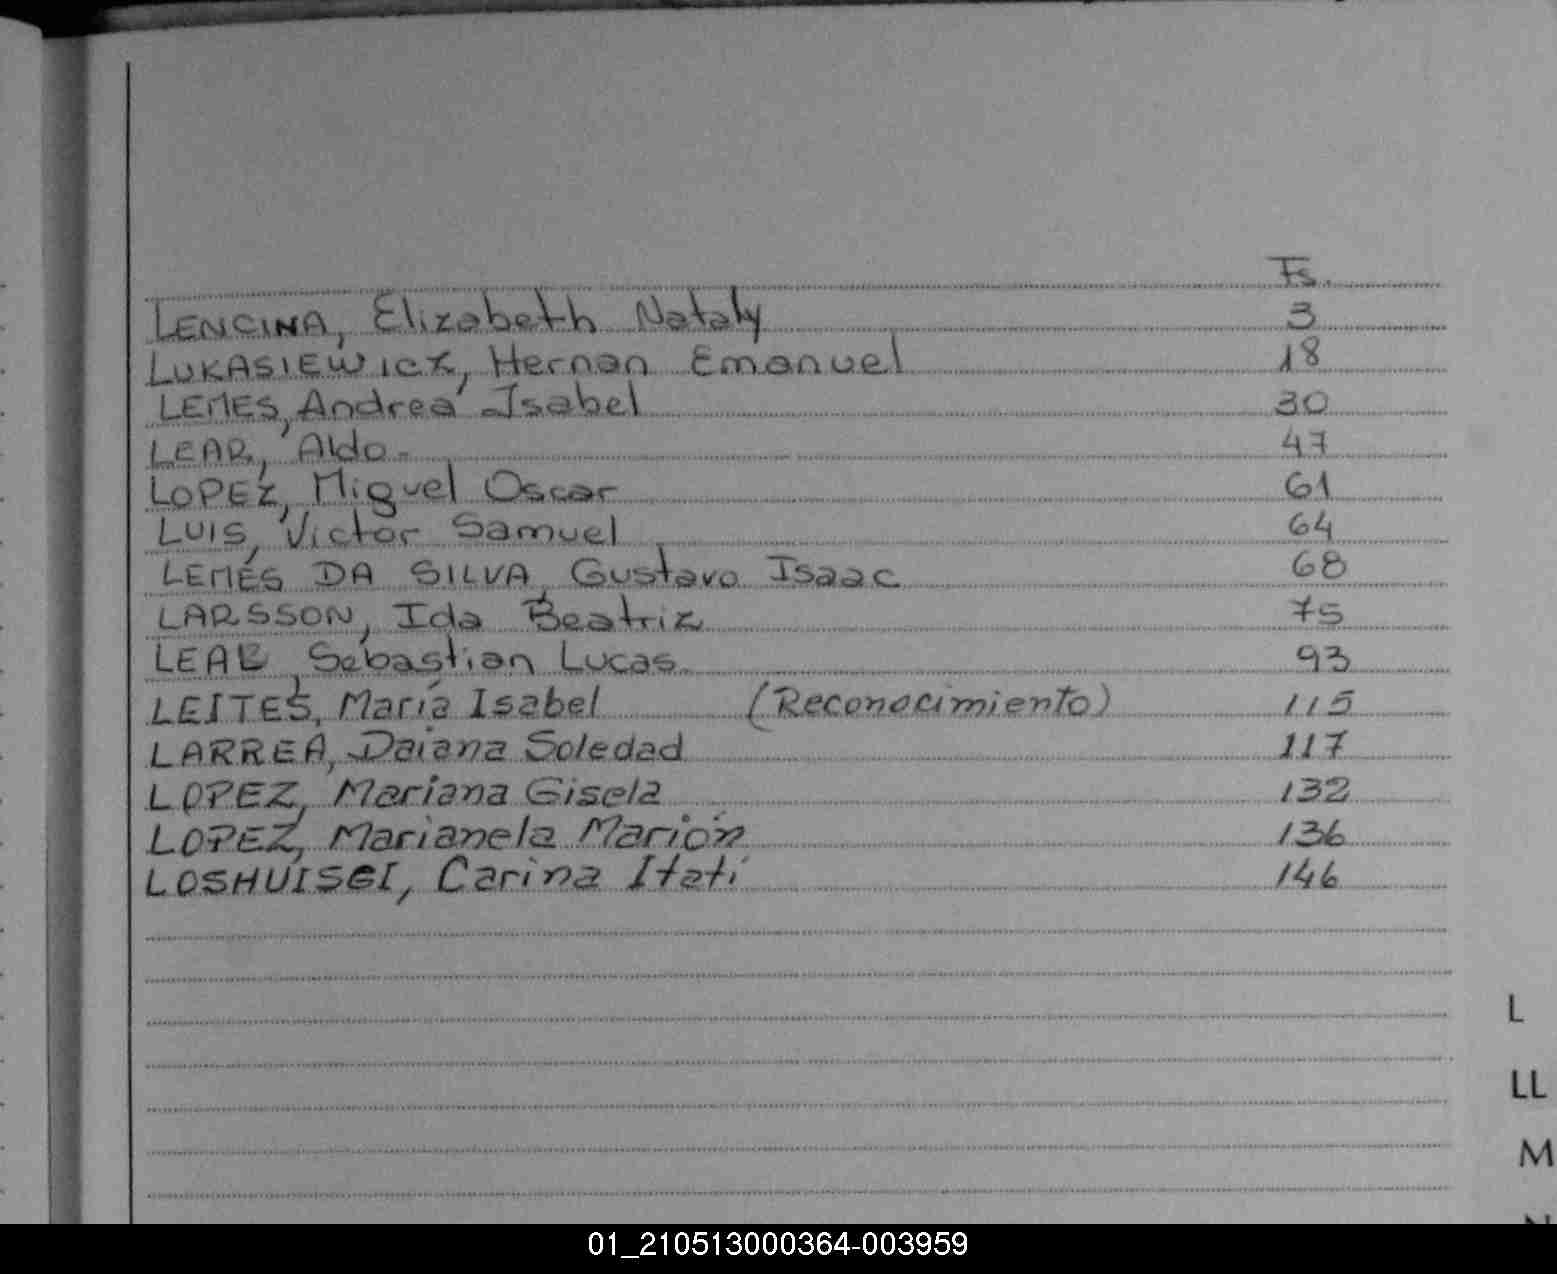 Fs.
LENCINA, Elizabeth Nataly 3
LUKASIEWICZ, Hernan Emanuel 18
LEMES, Andrea Isabel 30
LEAR, Aldo.- 47
LOPEZ, Miguel Oscar 61
LUIS, Victor Samuel 64
LEMES DA SILVA, Gustavo Isaac 68
LARSSON, Ida Beatriz 75
Sebastian Lucas. 93
LEITES, María Isabel (Reconocimiento) 115
LARREA, Daiana Soledad 117
LOPEZ, Mariana Gisela 132
LOPEZ, Marianela Marión 136
Carina Itatí 146
L
LL
M
01_210513000364-003959